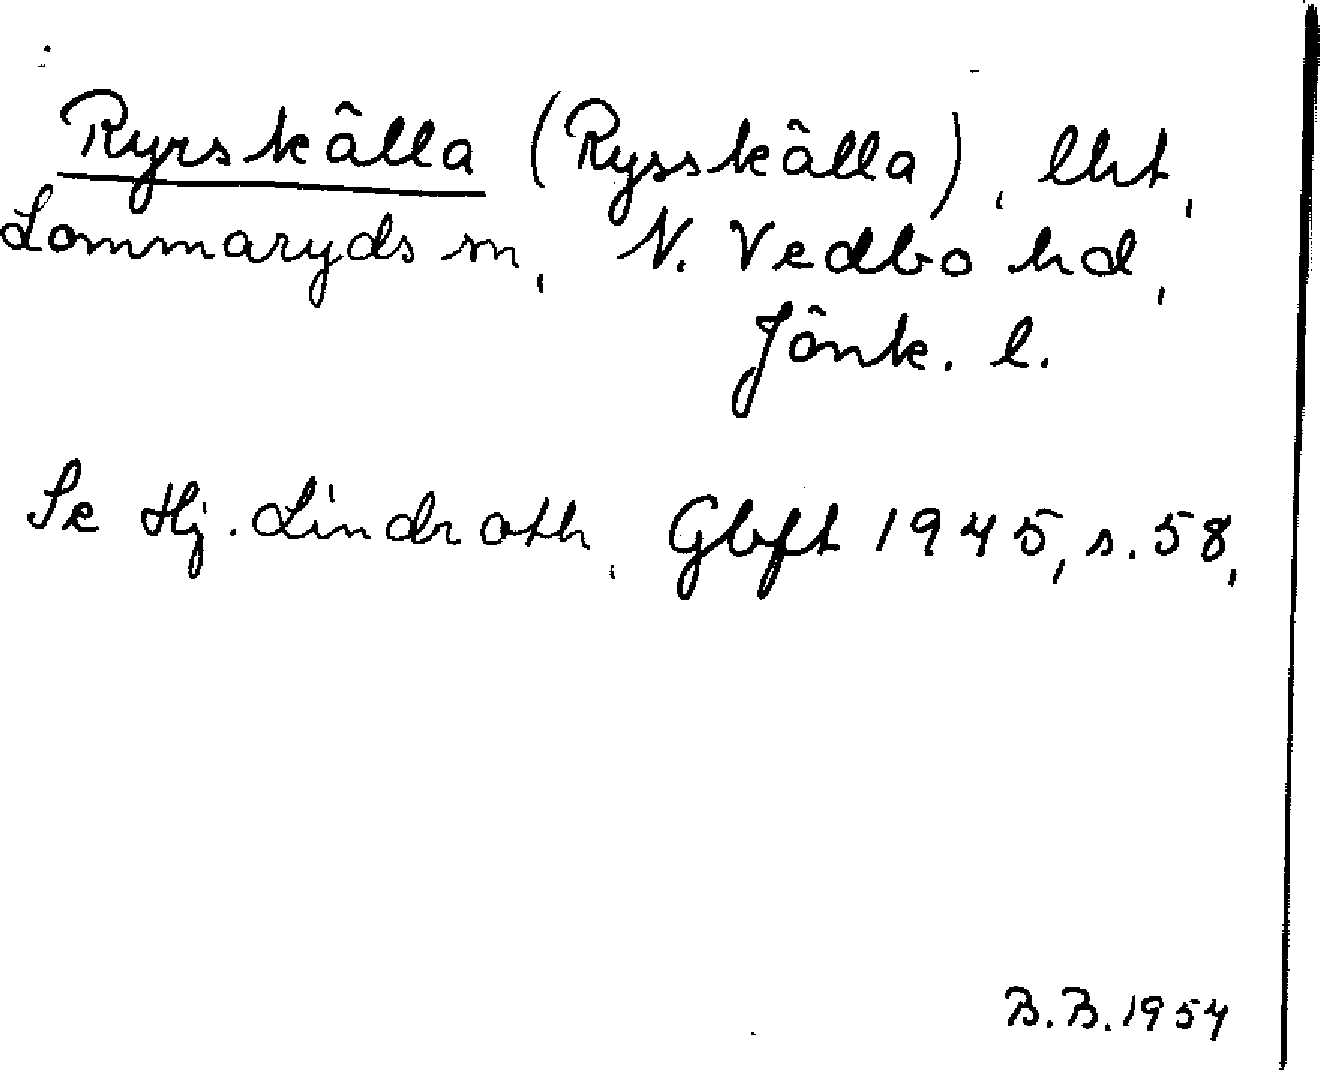 Ryrskälla (Rysskälla), lht,
Lommaryds sn, N. Vedbo hd,
Jönk. l.
Se Hj. Lindroth, Gbgft 1945, s. 58,
B.B. 1954